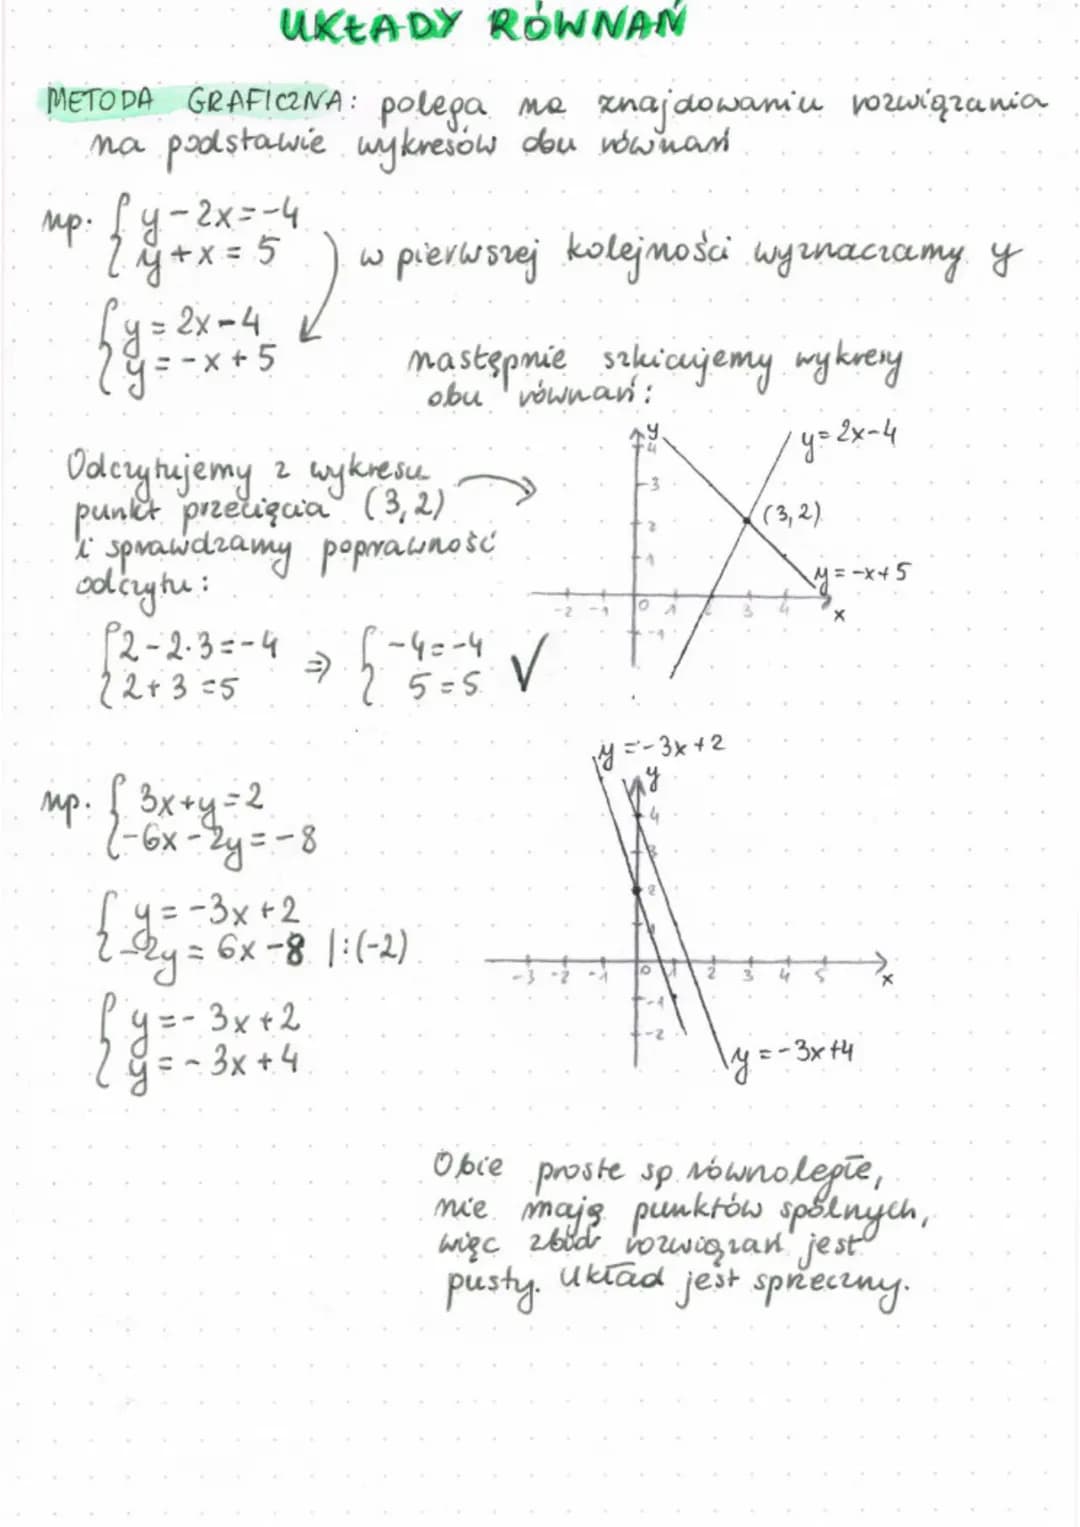 UKŁADY RÓWNAŃ
METODA GRAFICZNA: polega na znajdowaniu rozwiązania
na podstawie wykresów obu równań
np. { y - 2x = -4
{ y + x = 5
w pierwszej kolejności wyznaczamy y
{ y = 2x - 4
{ y = - x + 5
następnie szkicujemy wykresy
obu równań:
Odczytujemy z wykresu
punkt przecięcia (3,2)
i sprawdzamy poprawność
odczytu:
{ 2 - 2·3 = -4 ⇒ { -4 = -4 ✓
{ 2 + 3 = 5 { 5 = 5
y
y = 2x-4
4
3
(3,2)
2
1
y = -x+5
-2 -1 0 1 2 3 4 x
-1
np. { 3x+y = 2
{ -6x - 2y = -8
{ y = -3x + 2
{ -2y = 6x - 8 |:(-2)
{ y = - 3x + 2
{ y = - 3x + 4
y = -3x + 2
y
4
3
2
1
-3 -2 -1 0 1 2 3 4 5 x
-1
-2
y = -3x+4
Obie proste są równoległe,
nie mają punktów spólnych,
więc zbiór rozwiązań jest
pusty. Układ jest sprzeczny.